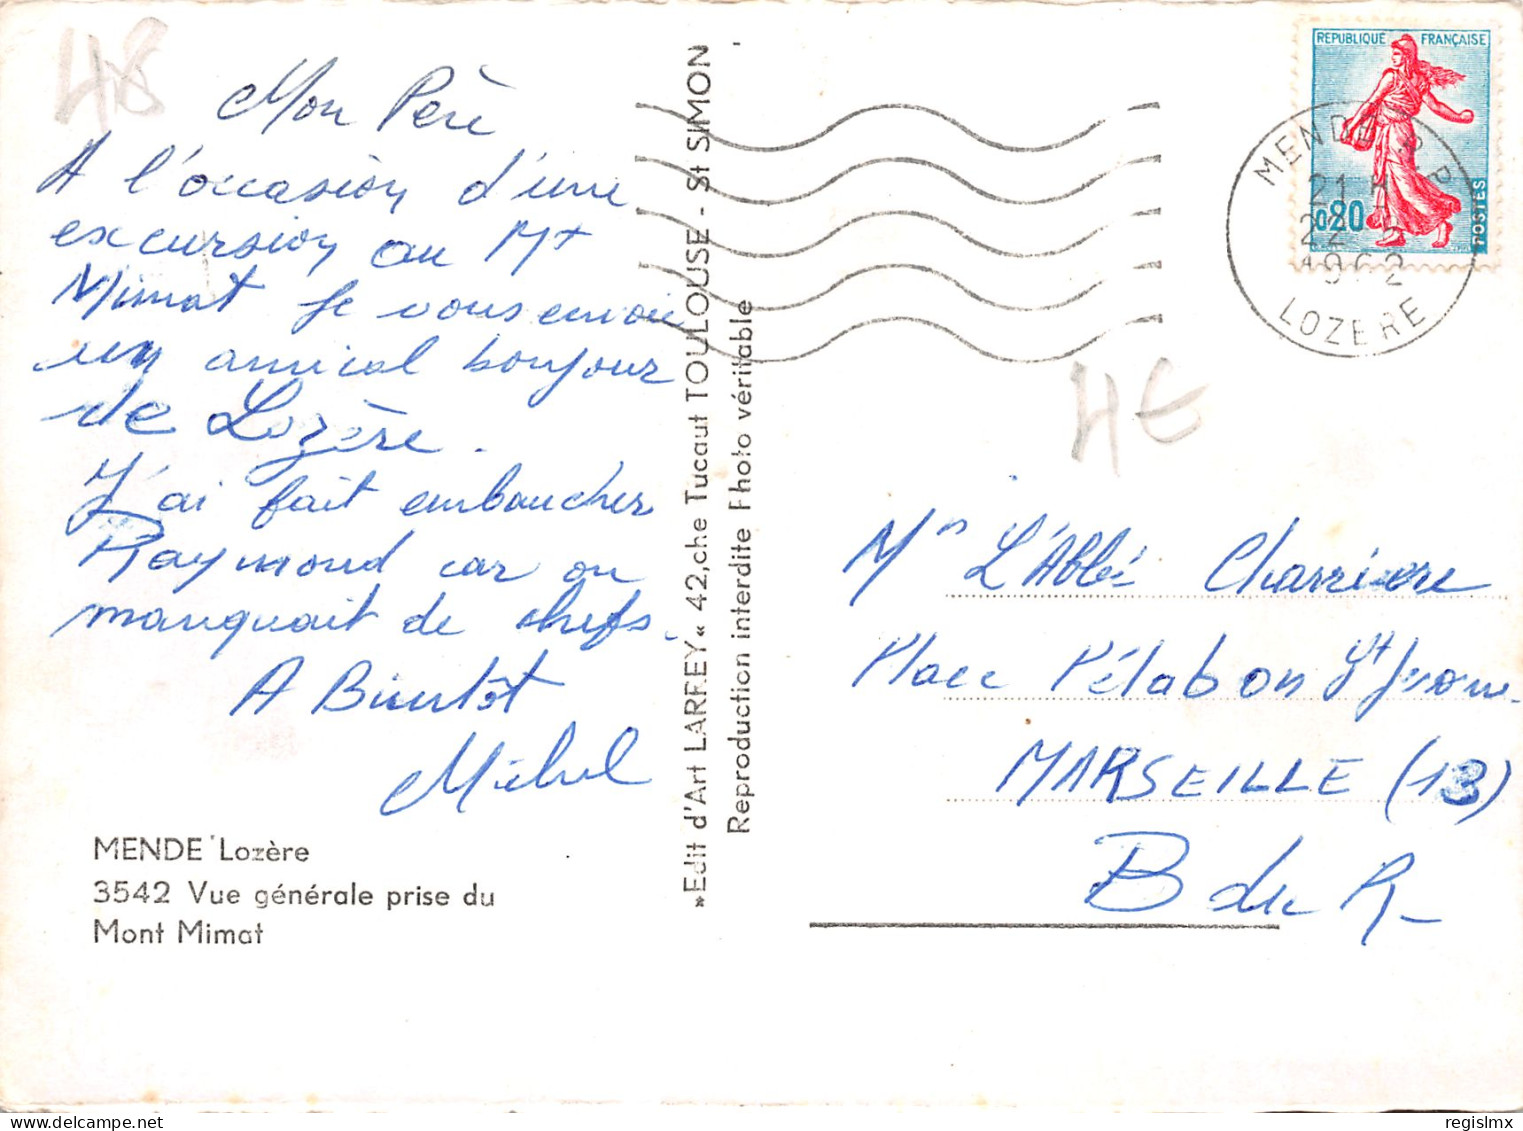 48
Mon Père
A l'occasion d'une
excursion au Mt
Mimat je vous envoie
un amical bonjour
de Lozère.
J'ai fait embaucher
Raymond car on
manquait de chefs.
A Bientôt
Michel
MENDE Lozère
3542 Vue générale prise du
Mont Mimat
»Edit d'Art LARREY« 42, che Tucaut TOULOUSE - St SIMON
Reproduction interdite Photo véritable
REPUBLIQUE FRANÇAISE
0,20
POSTES
MENDE R.P.
21 H
22
1962
LOZERE
4€
Mr L'Abbé Charriere
Place Pélabon St Jérome
MARSEILLE (13)
B du R
regislmx